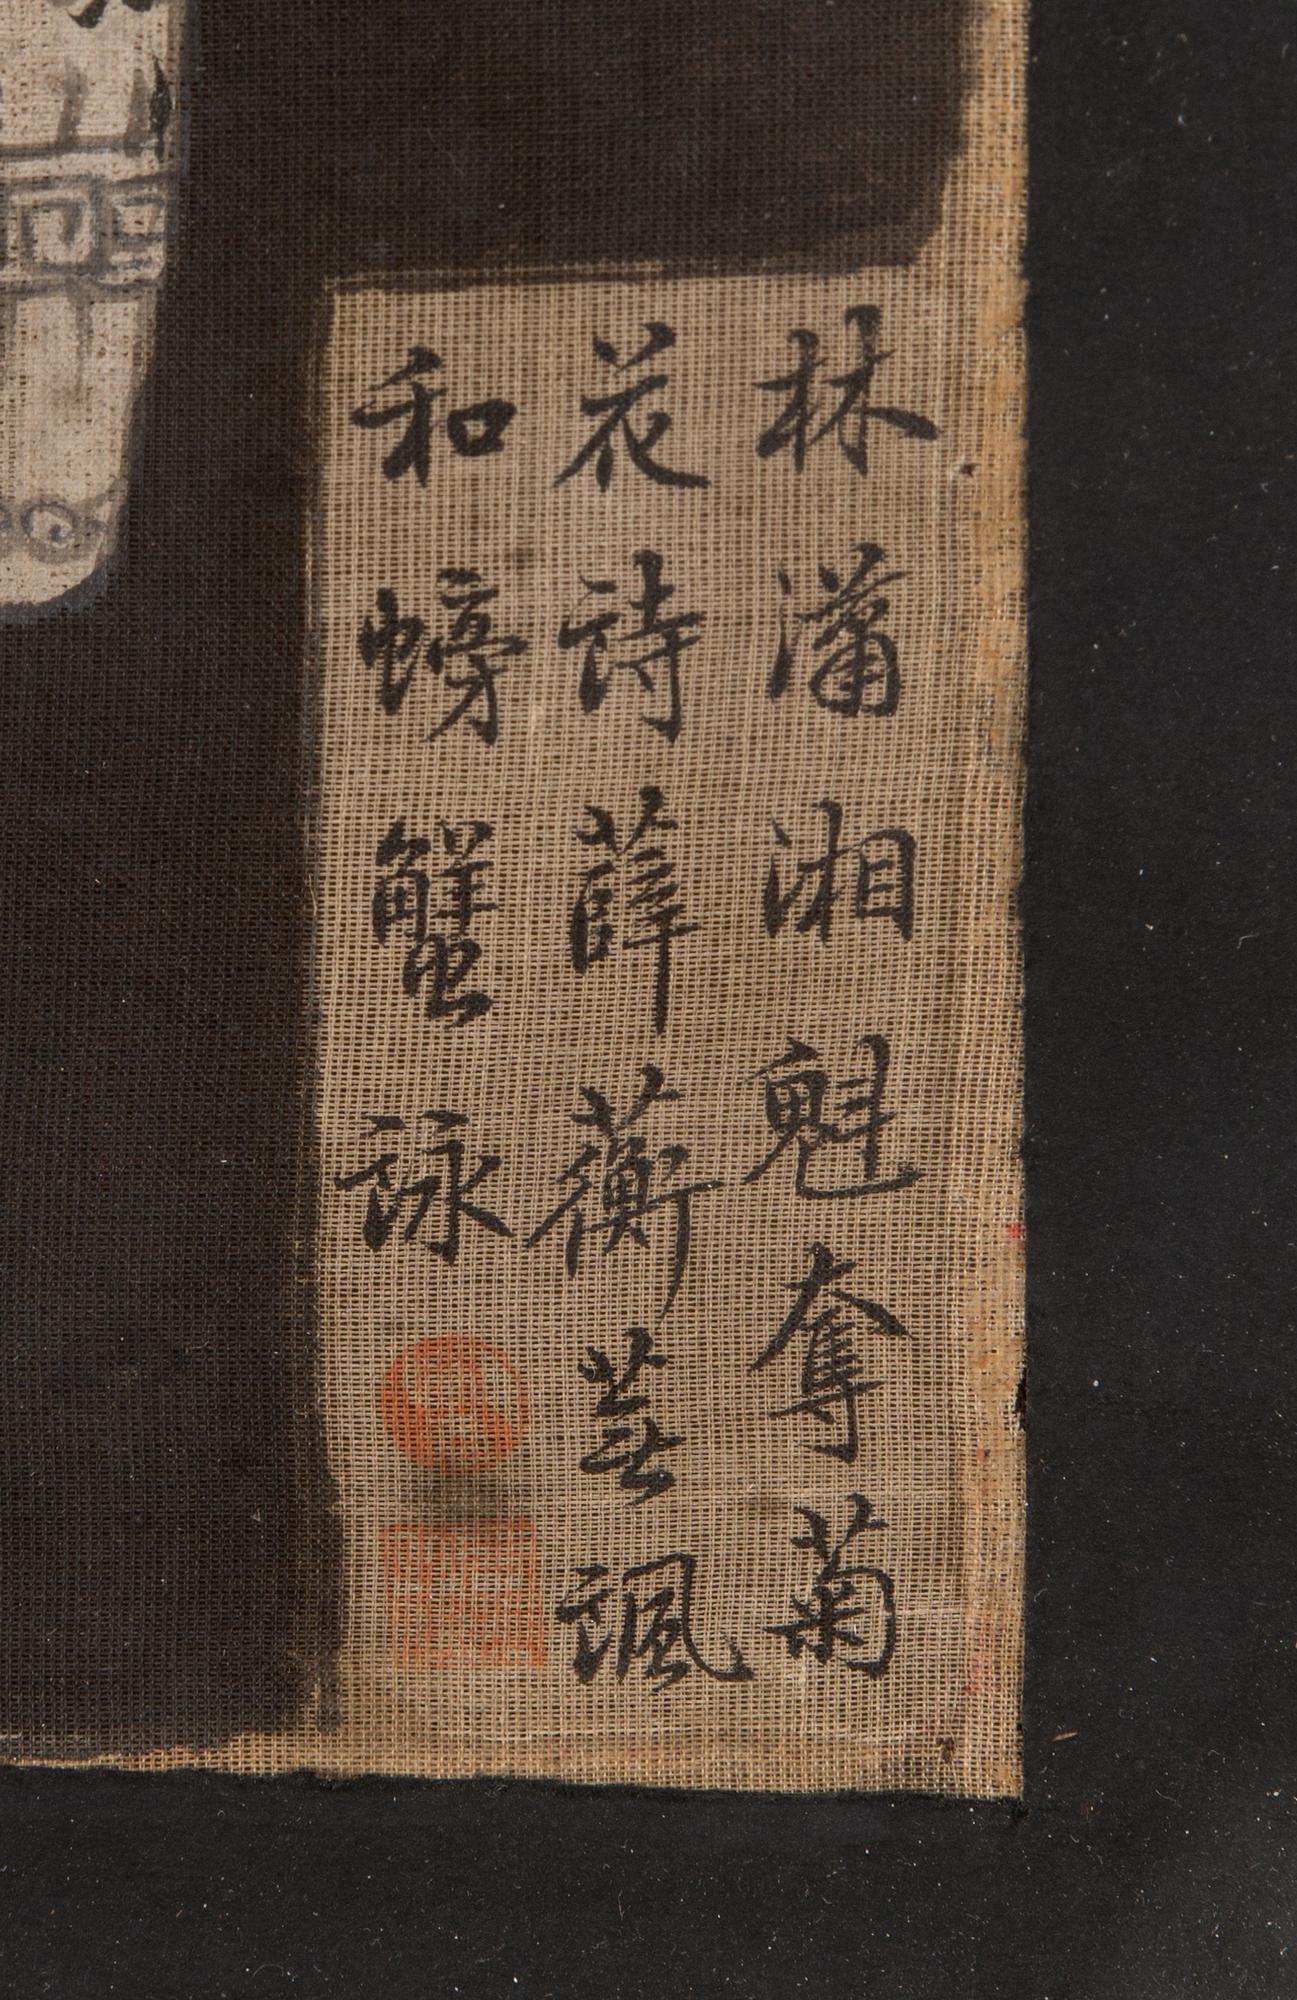 林瀟湘魁奪菊
花詩薛蘅芸諷
和螃蟹詠